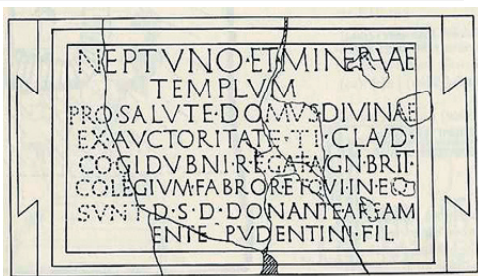 NEPTVNO·ET·MINERVAE
TEMPLVM
PRO·SALVTE·DOMVS·DIVINAE
EX·AVCTORITATE·TI·CLAVD·
COGIDVBNI·REGA·MAGN·BRIT·
COLEGIVM·FABROR·ET·QVI·IN·EO
SVNT·D·S·D·DONANTE·AREAM
ENTE PVDENTINI·FIL